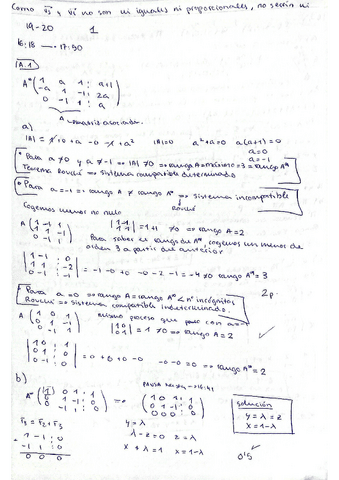 Como v⃗s y v⃗i no son ni iguales ni proporcionales, no serían ni
19-20 1
16:18 — 17:50
A.1
A* ( 1 a 1 : a+1
-a 1 -1 : 2a
0 -1 1 : a )
A → matriz asociada.
a)
|A| = 1 + 0 + a - 0 - 1 + a² |A|=0 a²+a=0 a(a+1)=0
a=0
a=-1
* Para a≠0 y a≠-1 ⇒ |A| ≠0 ⇒ rango A=máximo=3=rango A*
Teorema Rouché ⇒ Sistema compatible determinado
* Para a=-1 ⇒ rango A ≠ rango A* ⇒ sistema incompatible
Rouché
Cogemos menor no nulo
A ( 1 -1 1
1 1 -1
0 -1 1 ) | 1 -1
1 1 | = 1+1 ≠0 ⇒ rango A=2
Para saber el rango de A* cogemos un menor de
orden 3 a partir del anterior
| 1 -1 : 0
1 1 : -2
0 -1 : -1 | = -1 -0 +0 -0 -2 -1 = -4 ≠0 rango A* = 3
* Para a=0 ⇒ rango A = rango A* < nº incógnitas
Rouché ⇒ sistema compatible indeterminado.
2p.
A ( 1 0 1
0 1 -1
0 -1 1 ) mismo proceso que para con a=-1
| 1 0
0 1 | = 1 ≠0 ⇒ rango A=2
| 1 0 : 1
0 1 : 0
0 -1 : 0 | = 0+0+0-0 -0-0 = 0 ⇒ rango A* = 2
b)
A* ( 1 0 1 : 1
0 1 -1 : 0
0 -1 1 : 0 ) ⇒ ( 1 0 1 : 1
0 1 -1 : 0
0 0 0 : 0 )
solución
y = λ = z
x = 1-λ
r₃ = r₂ + r₃
1 -1 : 0
-1 1 : 0
0 0 0
y = λ
λ - z = 0 z = λ
x + λ = 1 x = 1-λ
0'5